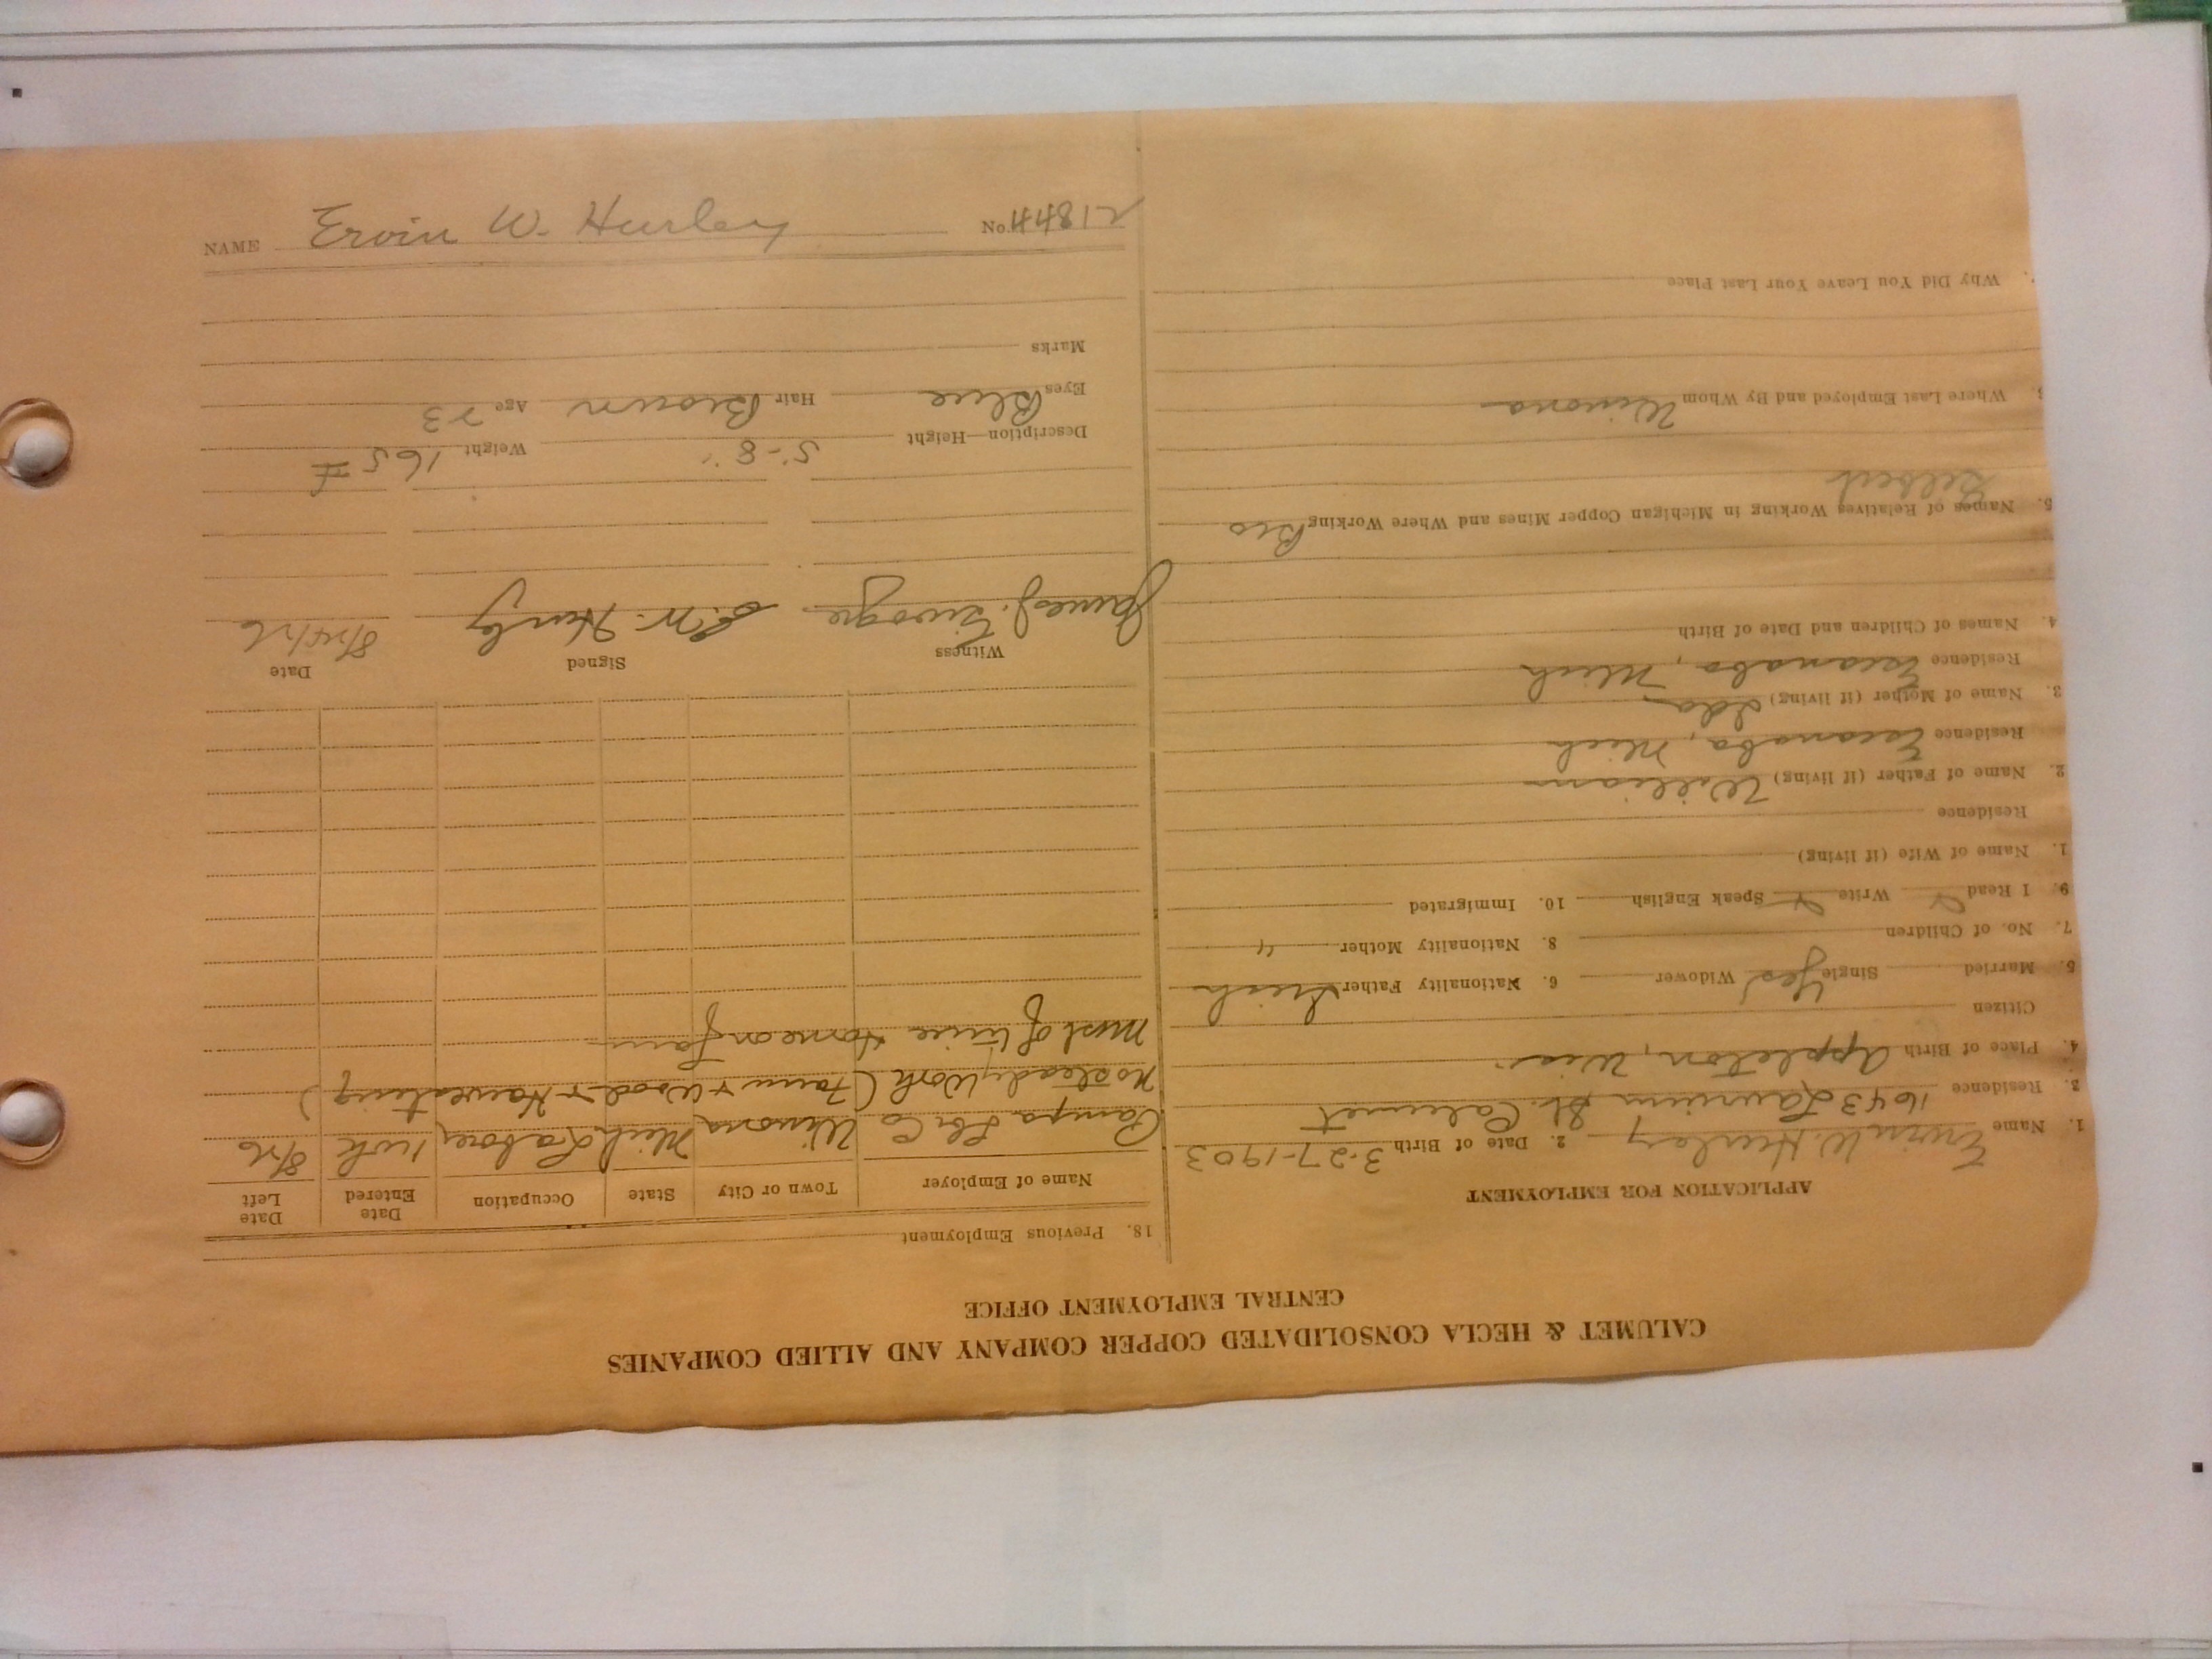 CALUMET & HECLA CONSOLIDATED COPPER COMPANY AND ALLIED COMPANIES
CENTRAL EMPLOYMENT OFFICE
APPLICATION FOR EMPLOYMENT
1. Name Ervin W. Hurley 2. Date of Birth 3-27-1903
3. Residence 1643 Laurium St. Calumet
4. Place of Birth Appleton, Wis.
Citizen
5. Married Single Yes Widower 6. Nationality Father Irish
7. No. of Children 8. Nationality Mother "
9. I Read Write Speak English 10. Immigrated
1. Name of Wife (if living)
Residence
2. Name of Father (if living) William
Residence Escanaba, Mich
3. Name of Mother (if living) Ida
Residence Escanaba, Mich
4. Names of Children and Date of Birth
5. Names of Relatives Working in Michigan Copper Mines and Where Working Bro
Where Last Employed and By Whom Winona
Why Did You Leave Your Last Place
18. Previous Employment
Name of Employer Town or City State Occupation Date Entered Date Left
Lbr. Co Winona Mich Laborer 1 wk 8/26
No steady work (Farm + Woods + Harvesting)
Most of time home on farm
Witness Signed Date
James J. E.W. Hurley
Description—Height 5'-8" Weight 165 #
Eyes Blue Hair Brown Age 23
Marks
NAME Ervin W. Hurley No. 21844